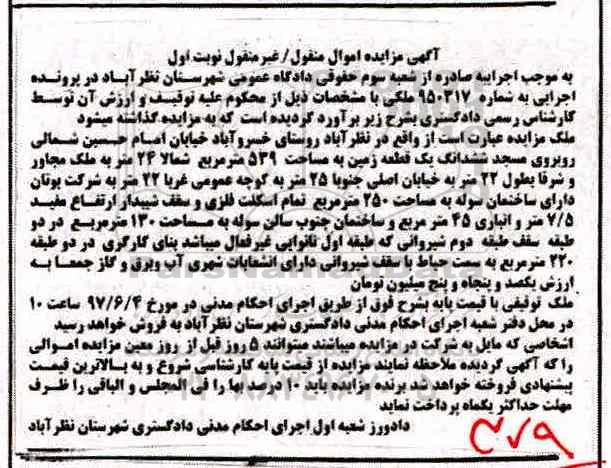 آگهی مزایده اموال منقول/غیر منقول نوبت اول
به موجب اجراییه صادره از شعبه سوم حقوقی دادگاه عمومی شهرستان نظرآباد در پرونده
اجرایی به شماره ۹۵۰۳۱۷ ملکی با مشخصات ذیل از محکوم علیه توقیف و ارزش آن توسط
کارشناس رسمی دادگستری بشرح زیر برآورد گردیده است که به مزایده گذاشته میشود
ملک مزایده عبارت است از واقع در نظرآباد روستای خسروآباد خیابان امام حسین شمالی
روبروی مسجد ششدانگ یک قطعه زمین به مساحت ۵۳۹ مترمربع شمالا ۲۴ متر به ملک مجاور
و شرقا بطول ۲۲ متر به خیابان اصلی جنوبا ۲۵ متر به کوچه عمومی غربا ۲۲ متر به شرکت بوتان
دارای ساختمان سوله به مساحت ۲۵۰ مترمربع تمام اسکلت فلزی و سقف شیبدار ارتفاع مفید
۷/۵ متر و انباری ۴۵ متر مربع و ساختمان جنوب سالن سوله به مساحت ۱۳۰ مترمربع در دو
طبقه سقف طبقه دوم شیروانی که طبقه اول نانوایی غیرفعال میباشد بنای کارگری در دو طبقه
۲۲۰ مترمربع به سمت حیاط با سقف شیروانی دارای انشعابات شهری آب وبرق و گاز جمعا به
ارزش یکصد و پنجاه و پنج میلیون تومان
ملک توقیفی با قیمت پایه بشرح فوق از طریق اجرای احکام مدنی در مورخ ۹۷/۶/۴ ساعت ۱۰
در محل دفتر شعبه اجرای احکام مدنی دادگستری شهرستان نظرآباد به فروش خواهد رسید
اشخاصی که مایل به شرکت در مزایده میباشند میتوانند ۵ روز قبل از روز معین مزایده اموالی
را که آگهی گردیده ملاحظه نمایند مزایده از قیمت پایه کارشناسی شروع و به بالاترین قیمت
پیشنهادی فروخته خواهد شد برنده مزایده باید ۱۰ درصد بها را فی المجلس و الباقی را ظرف
مهلت حداکثر یکماه پرداخت نماید
دادورز شعبه اول اجرای احکام مدنی دادگستری شهرستان نظرآباد